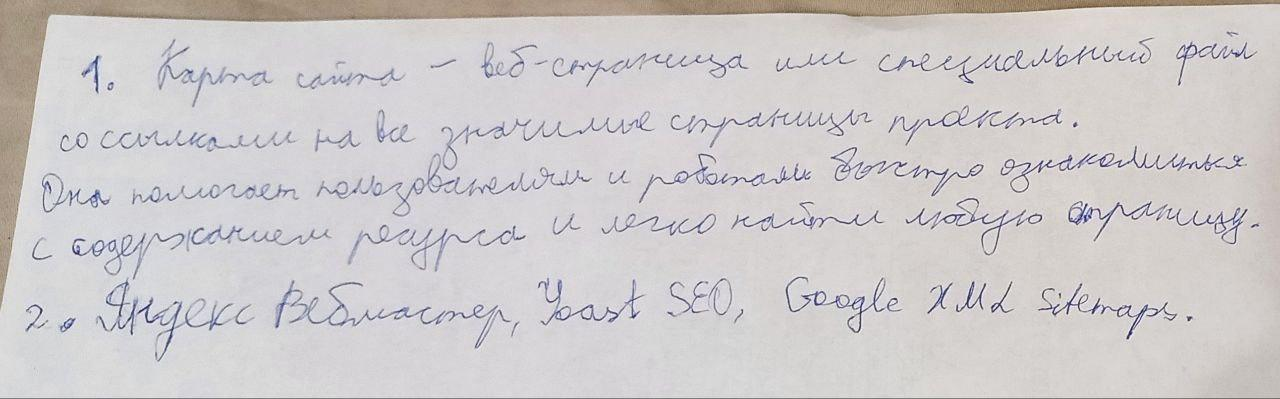 1. Карта сайта – веб-страница или специальный файл
со ссылками на все значимые страницы проекта.
Она помогает пользователям и роботам быстро ознакомиться
с содержанием ресурса и легко найти любую страницу.
2. Яндекс Вебмастер, Yoast SEO, Google XML Sitemaps.